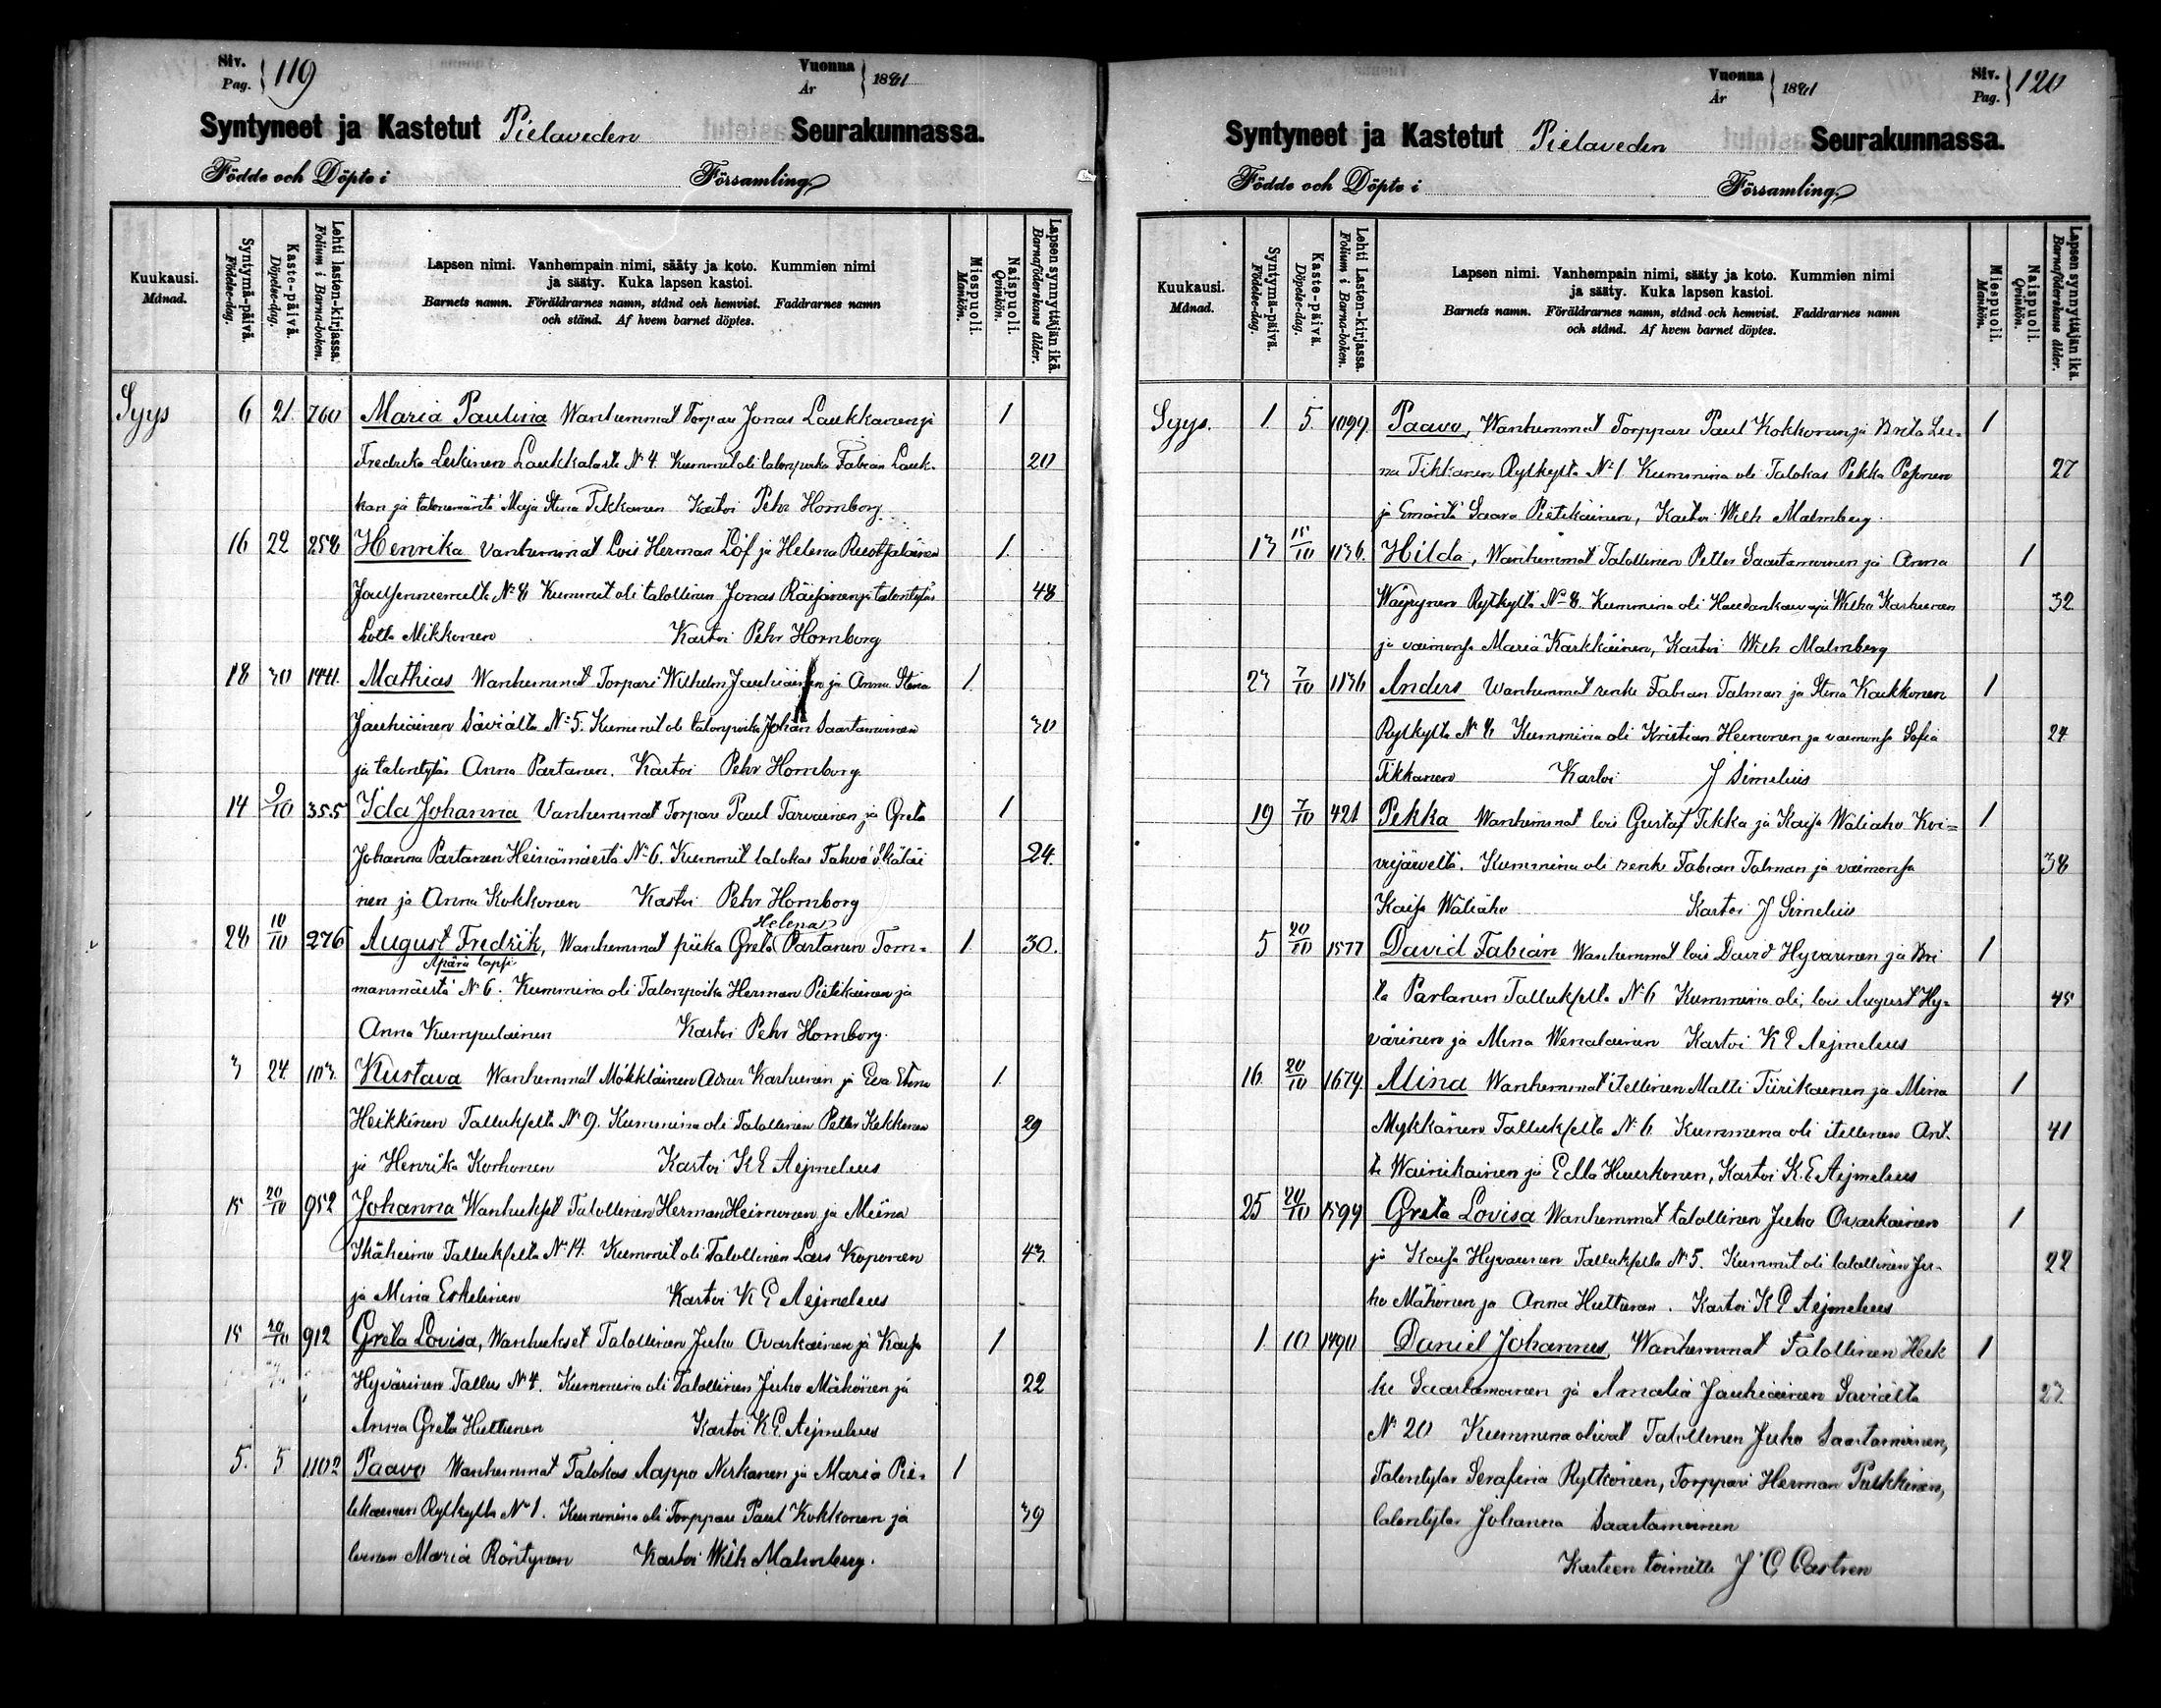 Siv.
Pag. 119
Vuonna
År 1881
Syntyneet ja Kastetut Pielaveden Seurakunnassa.
Födde och Döpte i Församling
Kuukausi.
Månad.
Syntymä-päivä.
Födelse-dag.
Kaste-päivä.
Döpelse-dag.
Lehti lasten-kirjassa.
Folium i Barna-boken.
Lapsen nimi. Vanhempain nimi, sääty ja koto. Kummien nimi
ja sääty. Kuka lapsen kastoi.
Barnets namn. Föräldrarnes namn, stånd och hemvist. Faddrarnes namn
och stånd. Af hvem barnet döptes.
Miespuoli.
Mankön.
Naispuoli.
Qvinkön.
Lapsen synnyttäjän ikä.
Barnaföderskans ålder.
Syys 6 21 760 Maria Paulina Wanhemmat Torpari Jonas Laukkanen ja 1
Fredrika Leskinen Laukkalasta N:o 4 Kummit oli talonpoika Fabian Lauk- 20
kan ja talonemäntä Maja Stina Tikkanen Kastoi Pehr Hornborg
16 22 258 Henrika Vanhemmat Lois Herman Löf ja Helena Ruotsalainen 1
Joutsenniemeltä N:o 8 Kummit oli talollinen Jonas Räisänen ja talontytär 48
Lotta Mikkonen Kastoi Pehr Hornborg
18 30 1441 Mathias Wanhemmat Torpari Wilhelm Jauhiainen ja Anna Stina 1
Jauhiainen Säviältä N:o 5. Kummit oli talonpoika Johan Saastamoinen 30
ja talontytär Anna Partanen. Kastoi Pehr Hornborg
14 9/10 355 Ida Johanna Vanhemmat Torpari Paul Tarvainen ja Greta 1
Johanna Partanen Heinämäestä N:o 6. Kummit talokas Tahvo Ikäläi 24
nen ja Anna Kokkonen Kastoi Pehr Hornborg
Helena
28 10/10 276 August Fredrik, Wanhemmat piika Greta Partanen Tom- 1 30.
Äpärä lapsi
manmäestä N:o 6. Kummina oli Talonpoika Herman Pietikäinen ja
Anna Kumpulainen Kastoi Pehr Hornborg.
3 24 103 Kustava Wanhemmat Mökkiläinen Adner Karhunen ja Eva Stina 1
Heikkinen Tallukselta N:o 9. Kummina oli Talollinen Petter Kekkonen 29
ja Henrika Korhonen Kastoi K E Aejmelæus
15 20/10 952 Johanna Wanhukset Talollinen Herman Heimonen ja Miina
Ikäheimo Tallukselta N:o 14. Kummit oli Talollinen Lars Koponen 43
ja Mina Eskelinen Kastoi K E Aejmelæus
15 20/10 912 Greta Lovisa, Wanhukset Talollinen Juho Ovaskainen ja Kaisa 1
Hyvärinen Tallus N:o 4. Kummina oli Talollinen Juho Mähönen ja 22
Anna Greta Huttunen Kastoi K.E. Aejmelæus
5. 5 1102 Paavo Wanhemmat Talokas Aappo Niskanen ja Maria Pie- 1
tikainen Rytkyltä N:o 1. Kummina oli Torppari Paul Kokkonen ja 39
Maria Röntynen Kastoi Wilh Malmberg.
Vuonna
År 1881
Siv.
Pag. 120
Syntyneet ja Kastetut Pielaveden Seurakunnassa.
Födde och Döpte i Församling
Kuukausi.
Månad.
Syntymä-päivä.
Födelse-dag.
Kaste-päivä.
Döpelse-dag.
Lehti Lasten-kirjassa.
Folium i Barna-boken.
Lapsen nimi. Vanhempain nimi, sääty ja koto. Kummien nimi
ja sääty. Kuka lapsen kastoi.
Barnets namn. Föräldrarnes namn, stånd och hemvist. Faddrarnes namn
och stånd. Af hvem barnet döptes.
Miespuoli.
Mankön.
Naispuoli.
Qvinkön.
Lapsen synnyttäjän ikä.
Barnaföderskans ålder.
Syys. 1. 5. 1099. Paavo, Wanhemmat Torppari Paul Kokkonen ja Brita Lii- 1
na Tikkanen Rytkyltä N:o 1 Kummina oli Talokas Pekka Pesonen 27
ja Emäntä Saara Pietikäinen, Kastoi Wilh Malmberg.
13 15/10 1136. Hilda, Wanhemmat Talollinen Petter Saastamoinen ja Anna 1
Wäyrynen Rytkyltä N:o 8. Kummina oli Haudankaivaja Wilho Karhunen 32
ja vaimonsa Maria Kärkkäinen, Kastoi Wilh Malmberg
23 7/10 1136 Anders Wanhemmat renki Fabian Talman ja Stina Kaukkonen 1
Rytkyltä N:o 8 Kummina oli Kristian Heinonen ja vaimonsa Sofia 24
Tikkanen Kastoi J Simelius
19 7/10 421 Pekka Wanhemmat lois Gustaf Tikka ja Kaisa Wäliaho Koi= 1
vujärveltä. Kummina oli renki Fabian Talman ja vaimonsa 38
Kaisa Wäliaho Kastoi J Simelius
5 20/10 1577 David Fabian Wanhemmat lois David Hyvärinen ja Bri 1
ta Partanen Tallukselta N:o 6 Kummina oli, lois August Hy- 45
värinen ja Mina Wenäläinen Kastoi K E Aejmelæus
16. 20/10 1674 Alina Wanhemmat itellinen Matti Tiirikainen ja Mina 1
Mykkänen Tallukselta N:o 6 Kummina oli itellinen Ant- 41
ti Wainikainen ja Edla Huuskonen, Kastoi K.E Aejmelæus
25 20/10 1599 Greta Lovisa Wanhemmat talollinen Juho Ovaskainen 1
ja Kaisa Hyvärinen Tallukselta N:o 5. Kummit oli talollinen Ju- 22
ho Mähönen ja Anna Huttunen. Kastoi K E Aejmelæus
1. 10 1490 Daniel Johannes, Wanhemmat Talollinen Heik 1
ki Saastamoinen ja Amalia Jauhiainen Säviältä 27
N:o 20 Kummina olivat Talollinen Juho Saastamoinen,
Talontytär Serafina Rytkönen, Torppari Herman Pulkkinen,
talontytär Johanna Saastamoinen
Kasteen toimitti J C Castren